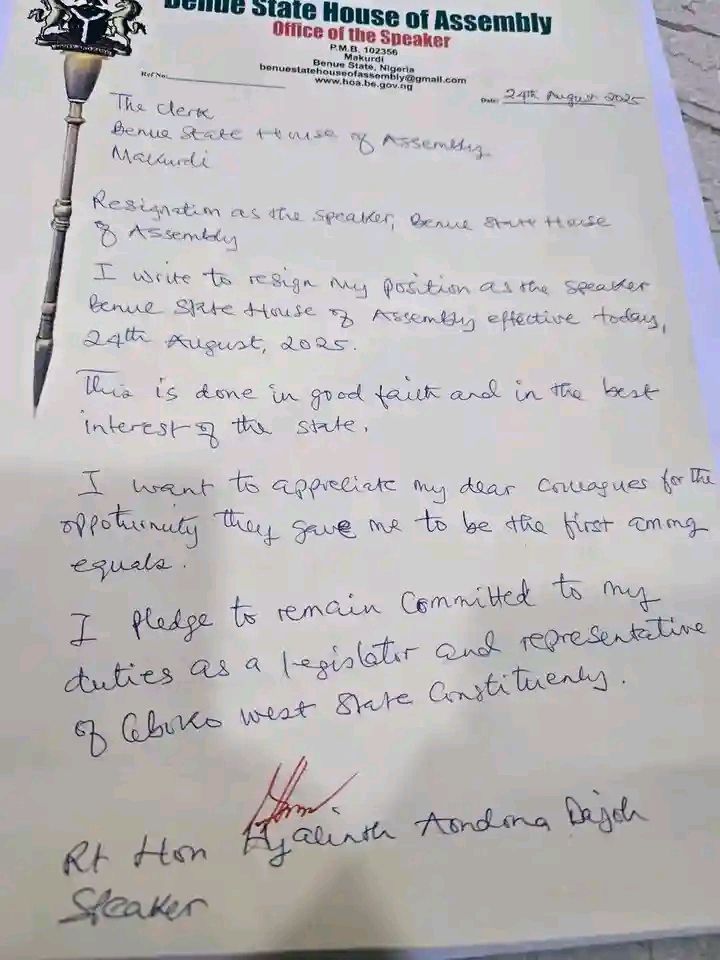 Benue State House of Assembly
Office of the Speaker
P.M.B. 102356
Makurdi
Benue State, Nigeria
benuestatehouseofassembly@gmail.com
www.hoa.be.gov.ng
Ref No:
Date: 24th August 2025
The Clerk
Benue State House of Assembly
Makurdi
Resignation as the Speaker, Benue State House
of Assembly
I write to resign my position as the Speaker
Benue State House of Assembly effective today,
24th August, 2025.
This is done in good faith and in the best
interest of the state.
I want to appreciate my dear colleagues for the
oppotuinuty they gave me to be the first among
equals.
I pledge to remain committed to my
duties as a legislator and representative
of Gboko west State Constituency.
Rt Hon Hyacinth Aondona Dajoh
Speaker